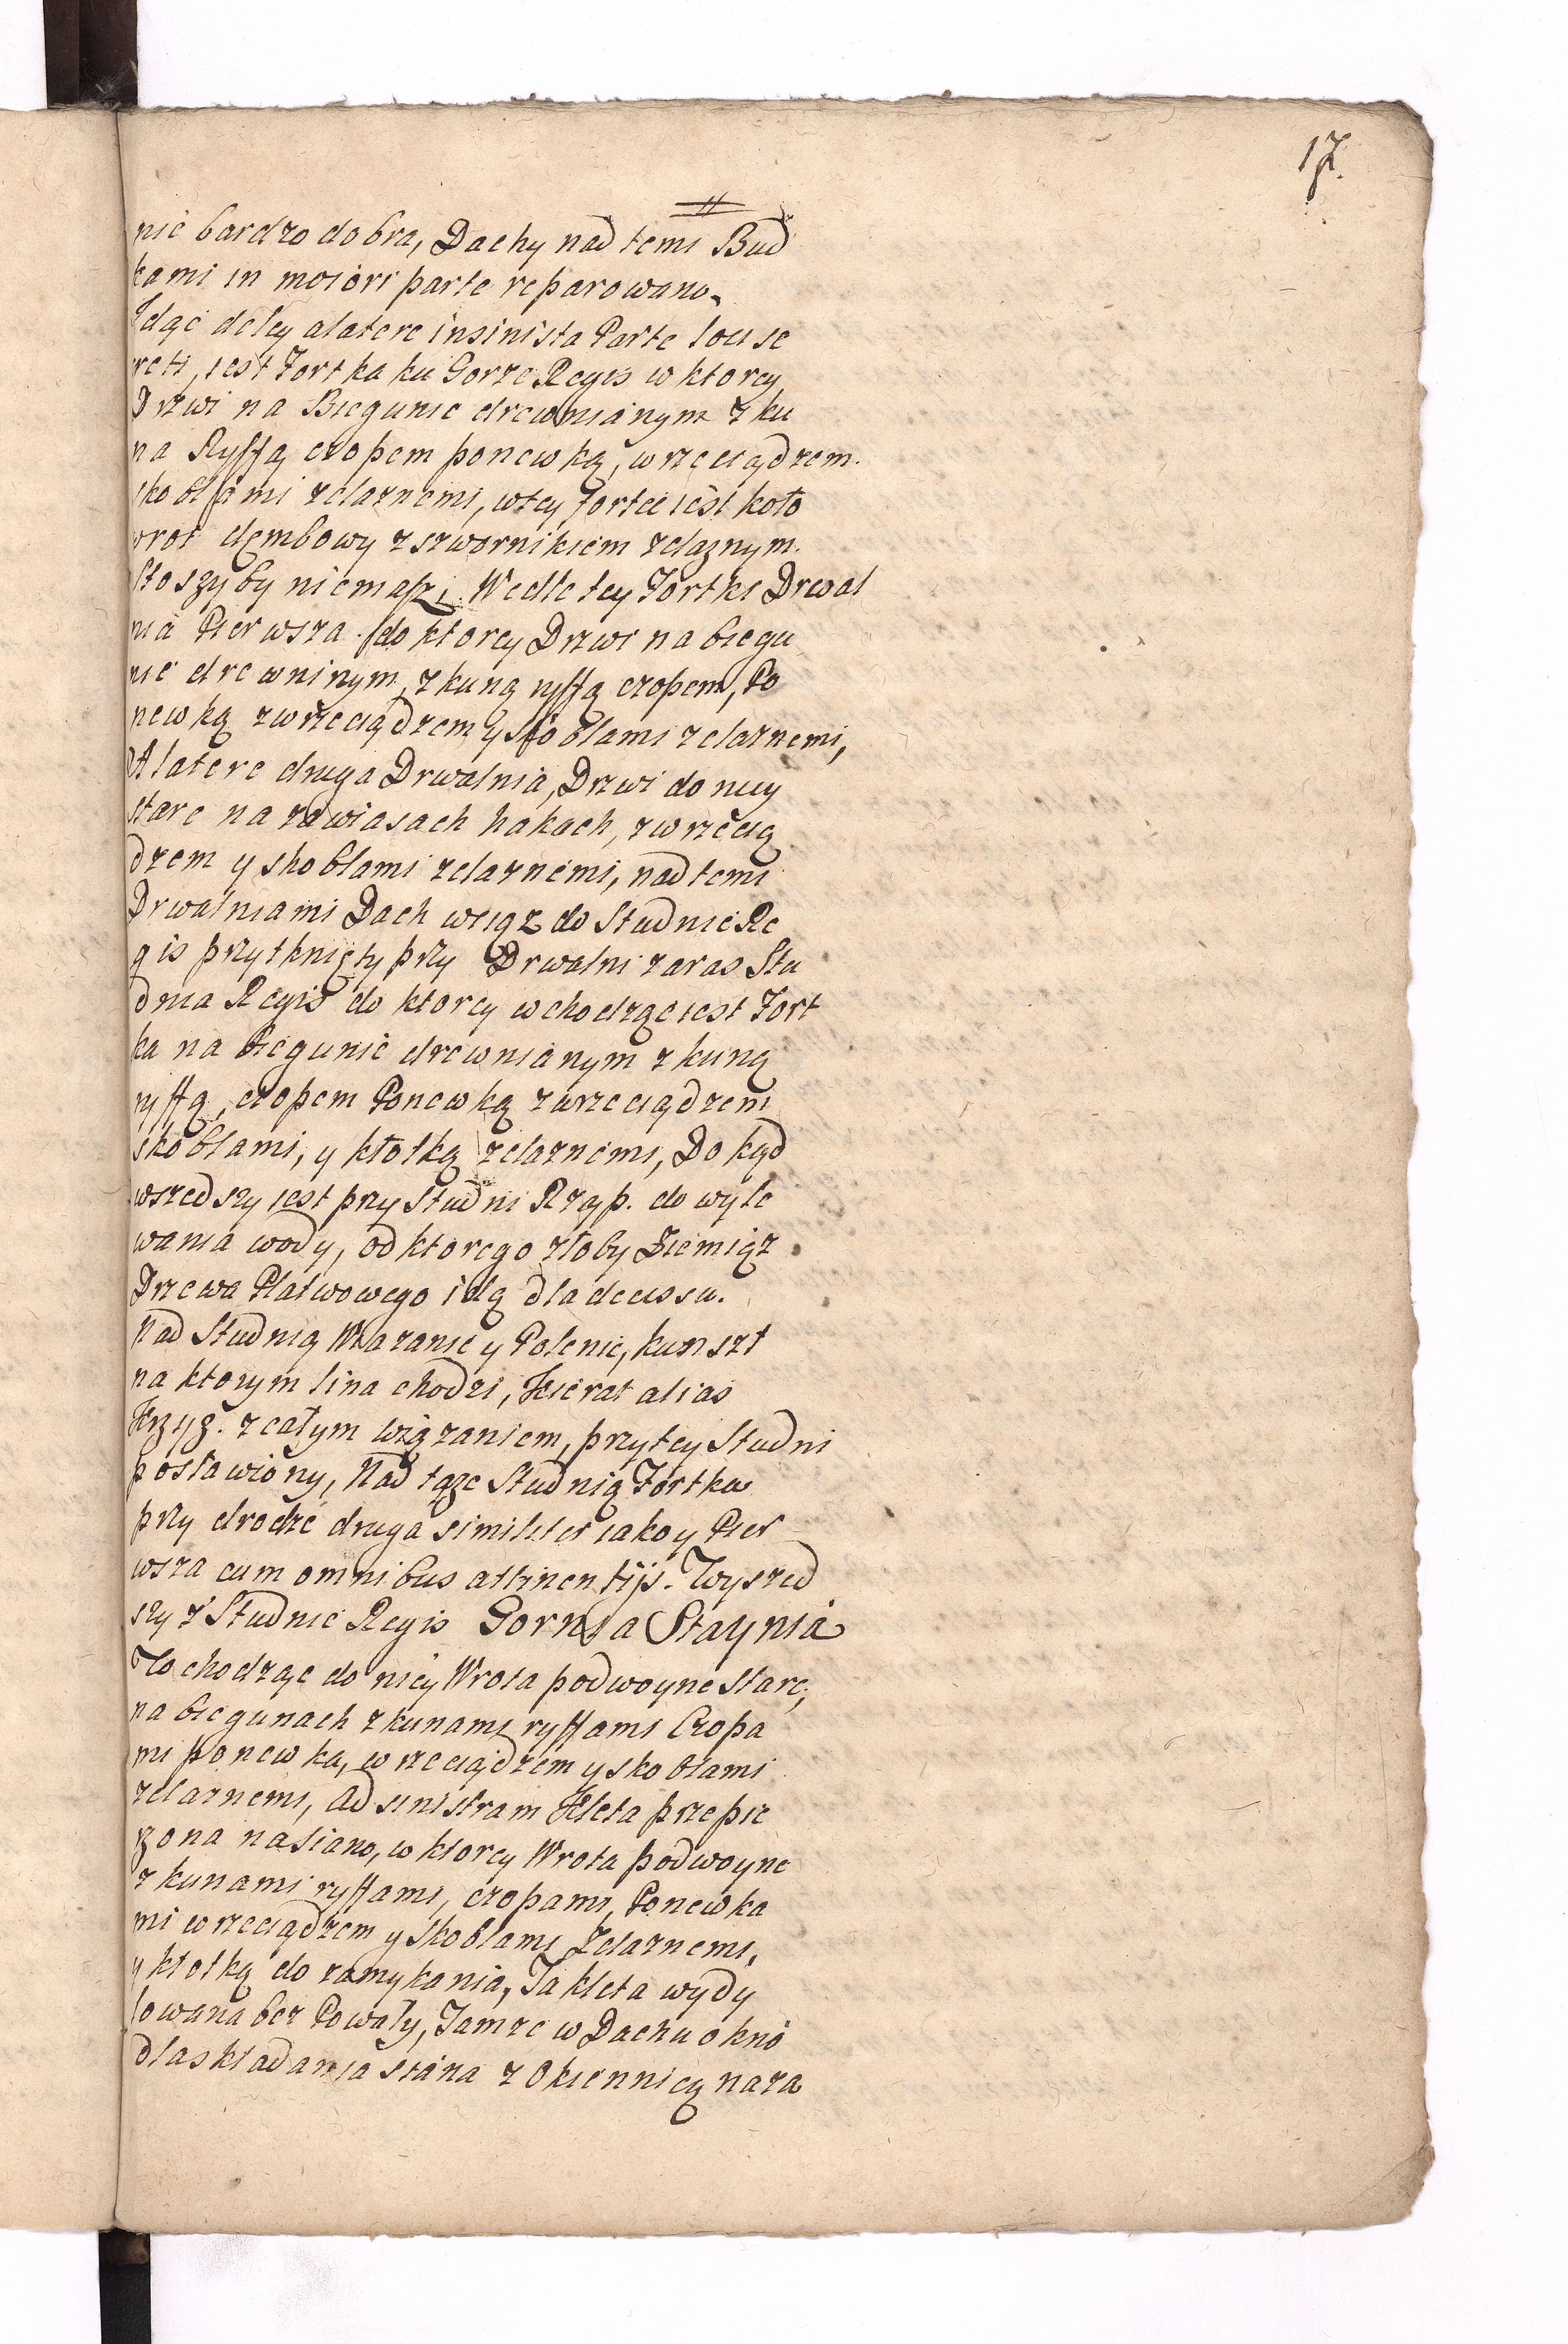 17.
nie bardzo dobra, Dachy nad temi Bud
kami in maiori parte reparowano.
Idąc daley a latere in sinista Parte loci se
creti, iest Fortka ku Gorze Regis w ktorey
Drzwi na Biegunie drewnianym z ku
na Ryffą czopem ponewką, wrzeciądzem.
skoblami zelaznemi, w tey fortce iest koło
wrot dembowy z szwornikiem zelaznym.
Stoszyby niemasz, Wedle tey Fortki Drwal
nia Pierwsza. do ktorey Drzwi na biegu
nie drewninym, z kuną ryffą czopem, Po
newką z wrzeciądzem y skoblami zelaznemi,
A latere druga Drwalnia, Drzwi do niey
stare na zawiasach hakach, z wrzecią
dzem y skoblami zelaznemi, nad temi
Drwalniami Dach wciąz do Studnie Re
gis przytknięty przy Drwalni zaraz Stu
dnia Regis do ktorey wchodząc iest Fort
ka na biegunie drewnianym z kuną
ryffą, czopem Ponewką z wrzeciądzem
skoblami, y kłotką zelaznemi, Do kąd
wszedszy iest przy Studni Rząp. do wyle
wania wody, od ktorego złoby Ziemią z
Drzewa Płatwowego idą dla decessu.
Nad Studnią Wiązanie y Polenie, kunszt
na ktorym lina chodzi, Kierat alias
Krzyż. z całym wiązaniem, przy tey Studni
postawiony, Nad tąze Studnią Fortka
przy drodze druga similiter iako y Pier
wsza cum omnibus attinentijs. Wyszed
szy z Studnie Regis Gornia Staynia
Wchodząc do niey Wrota podwoyne stare,
na biegunach z kunami ryffami Czopa
mi ponewka, wrzeciądzem y skoblami
zelaznemi, Ad sinistram Kleta przepie
rzona na siano, w ktorey Wrota podwoyne
z kunami ryffami, czopami, Ponewka
mi wrzeciądzem y skoblami zelaznemi,
y kłotką do zamykania, Ta kleta wydy
lowana bez Powały, Tamze w Dachu okno
dla składania siana z Okiennicą na za